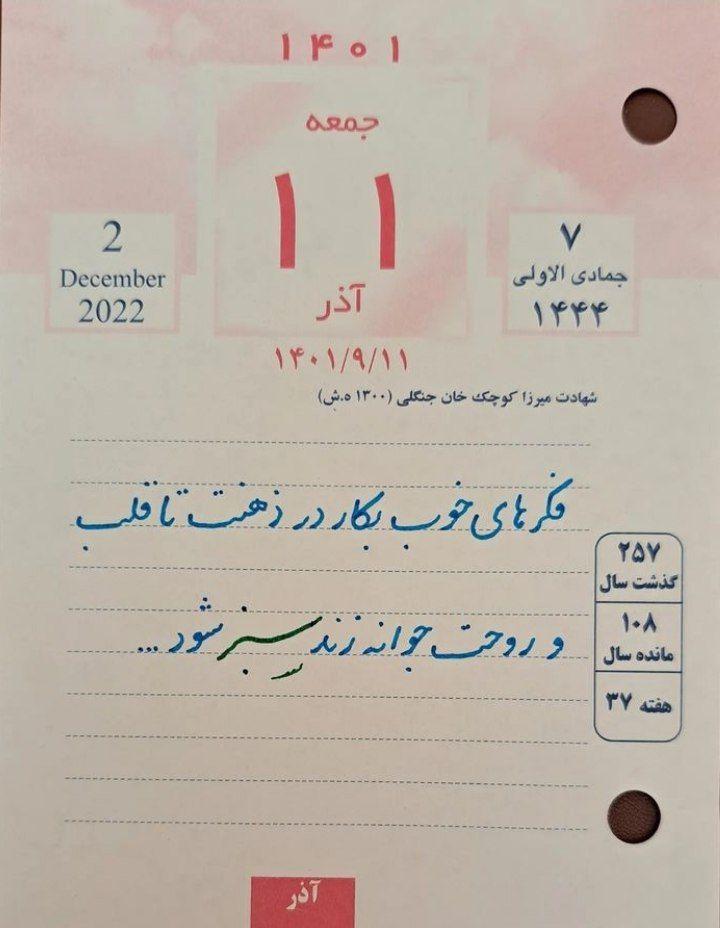 ۱۴۰۱
جمعه
۱۱
آذر
2
December
2022
۷
جمادی الاولی
۱۴۴۴
۱۴۰۱/۹/۱۱
شهادت میرزا کوچک خان جنگلی (۱۳۰۰ ه.ش)
فکرهای خوب بکار در ذهنت تا قلب
و روحت جوانه زند سبز شود ...
۲۵۷
گذشت سال
۱۰۸
مانده سال
هفته ۳۷
آذر